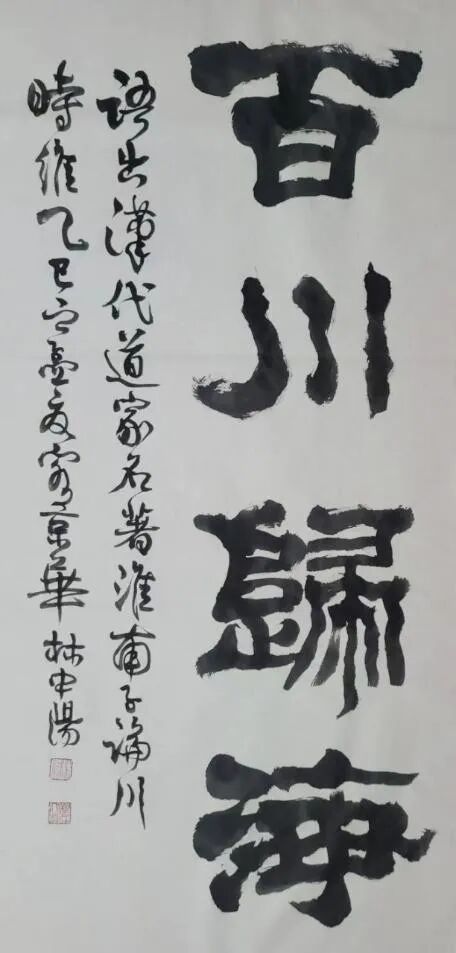 百川歸海
語出漢代道家名著淮南子論川
時維乙巳之夏友客京華林中陽